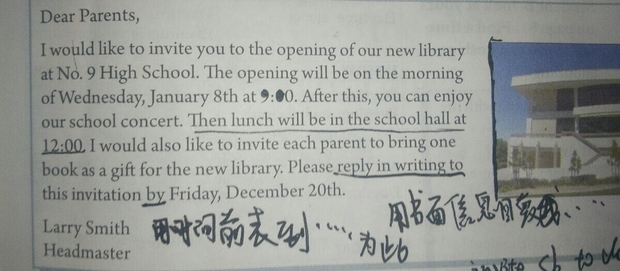 Dear Parents,
I would like to invite you to the opening of our new library
at No. 9 High School. The opening will be on the morning
of Wednesday, January 8th at 9:00. After this, you can enjoy
our school concert. Then lunch will be in the school hall at
12:00. I would also like to invite each parent to bring one
book as a gift for the new library. Please reply in writing to
this invitation by Friday, December 20th.
Larry Smith
Headmaster
用时间前表到·····
用书面信息回
为此
invite sb to